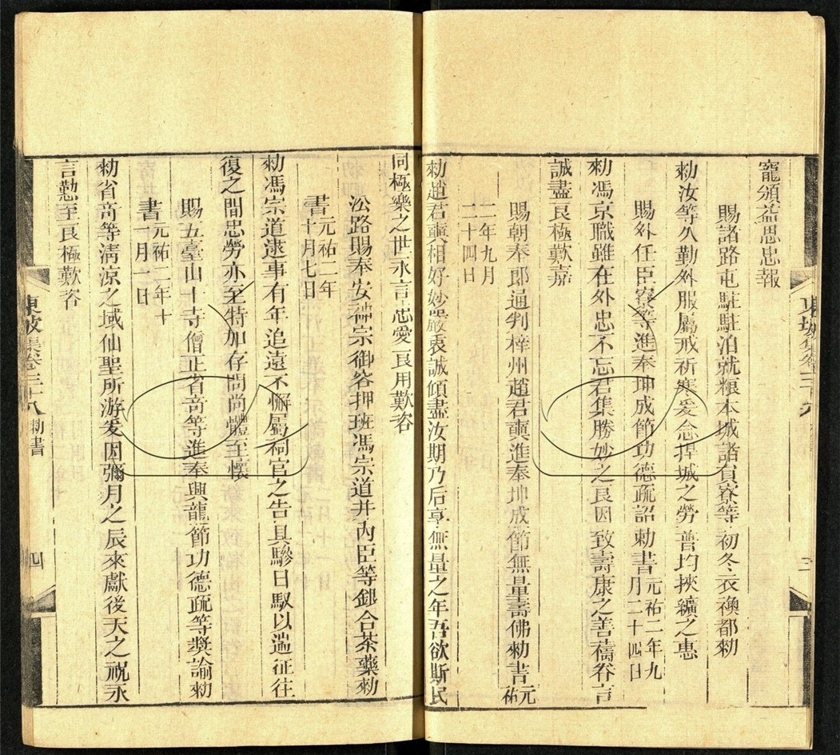 寵頒益思忠報
賜諸路屯駐駐泊就粮本城諸員寮等初冬衣襖都勑
勑汝等久勤外服屬戒祈寒爰念捍城之勞普均挾纊之惠
賜外任臣寮等進奉坤成節功德疏詔勑書元祐二年九月二十四日
勑馮京職雖在外忠不忘君集勝妙之良因致壽康之善禱眷言
誠盡良極歎嘉
賜朝奉郎通判梓州趙君奭進奉坤成節無量壽佛勑書元祐
二年九月二十四日
勑趙君奭相好妙嚴衷誠傾盡汝期乃后享無量之年吾欲斯民
同極樂之世永言忠愛良用歎咨
沿路賜奉安神宗御容押班馮宗道并內臣等銀合茶藥勑
書元祐二年十月七日
勑馮宗道逮事有年追遠不懈屬祠官之告具驂日馭以遄征往
復之間忠勞亦至特加存問尚體至懷
賜五臺山十寺僧正省奇等進奉興龍節功德疏等奬諭勑
書元祐二年十一月一日
勑省奇等清涼之域仙聖所游爰因彌月之辰來獻後天之祝永
言勤至良極歎咨
東坡集卷三十八 勑書 四